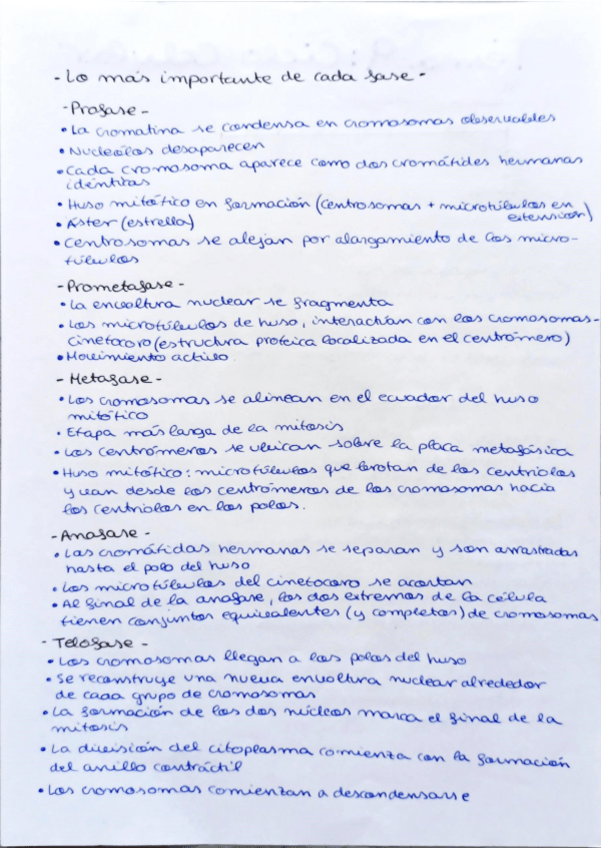 - Lo más importante de cada fase -
- Profase -
• La cromatina se condensa en cromosomas observables
• Nucleolos desaparecen
• Cada cromosoma aparece como dos cromátides hermanas
idénticas
• Huso mitótico en formación (centrosomas + microtúbulos en
extensión)
• Áster (estrella)
• Centrosomas se alejan por alargamiento de los micro-
túbulos
- Prometafase -
• La envoltura nuclear se fragmenta
• Los microtúbulos de huso, interactúan con los cromosomas-
cinetocoro (estructura proteica localizada en el centrómero)
• Movimiento activo.
- Metafase -
• Los cromosomas se alinean en el ecuador del huso
mitótico
• Etapa más larga de la mitosis
• Los centrómeros se ubican sobre la placa metafásica
• Huso mitótico: microtúbulos que brotan de los centriolos
y van desde los centrómeros de los cromosomas hacia
los centriolos en los polos.
- Anafase -
• Las cromátidas hermanas se separan y son arrastradas
hasta el polo del huso
• Los microtúbulos del cinetocoro se acortan
• Al final de la anafase, los dos extremos de la célula
tienen conjuntos equivalentes (y completos) de cromosomas
- Telofase -
• Los cromosomas llegan a los polos del huso
• Se reconstruye una nueva envoltura nuclear alrededor
de cada grupo de cromosomas
• La formación de los dos núcleos marca el final de la
mitosis
• La división del citoplasma comienza con la formación
del anillo contráctil
• Los cromosomas comienzan a descondensarse